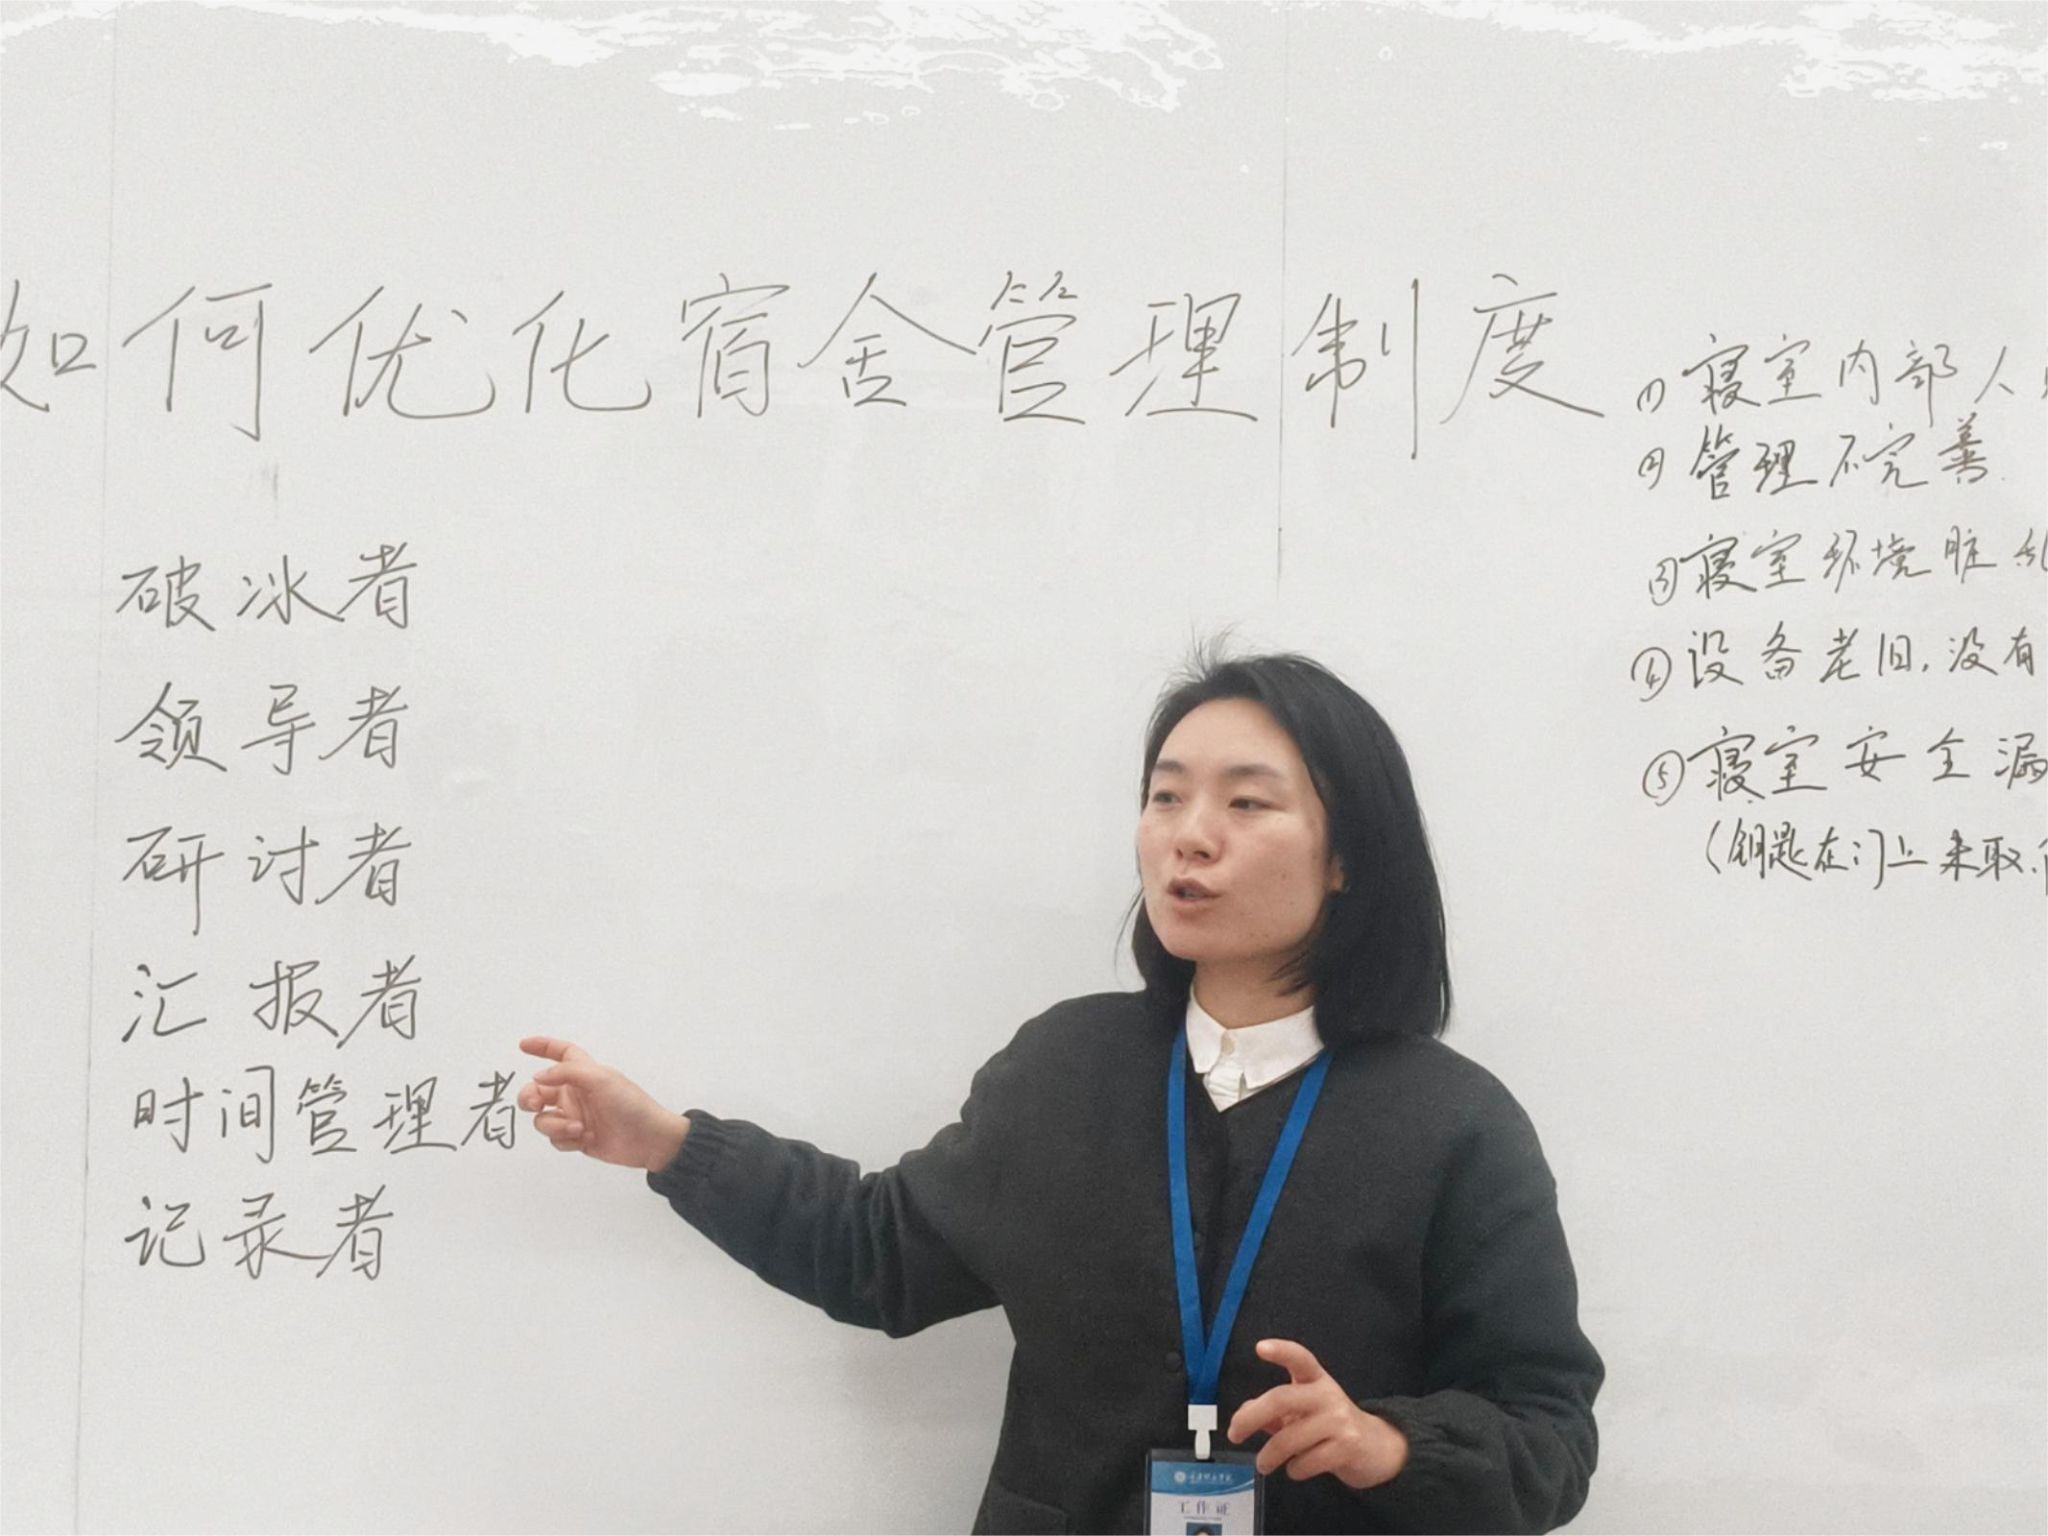 如何优化宿舍管理制度
破冰者
领导者
研讨者
汇报者
时间管理者
记录者
① 寝室内部人
② 管理不完善
③ 寝室环境脏
④ 设备老旧,没有
⑤ 寝室安全漏
(钥匙在门上未取.
工作证